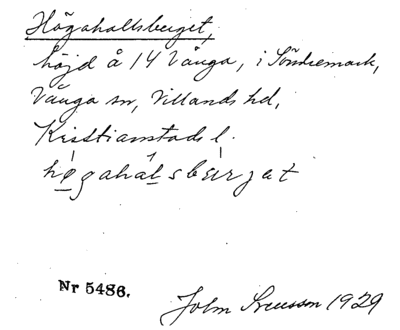 Högahallsberget,
höjd å 14 Vånga, i Söndremark,
Vånga sn, Villands hd,
Kristianstads l.
høgahalsbärjat
Nr 5486.
John Svensson 1929